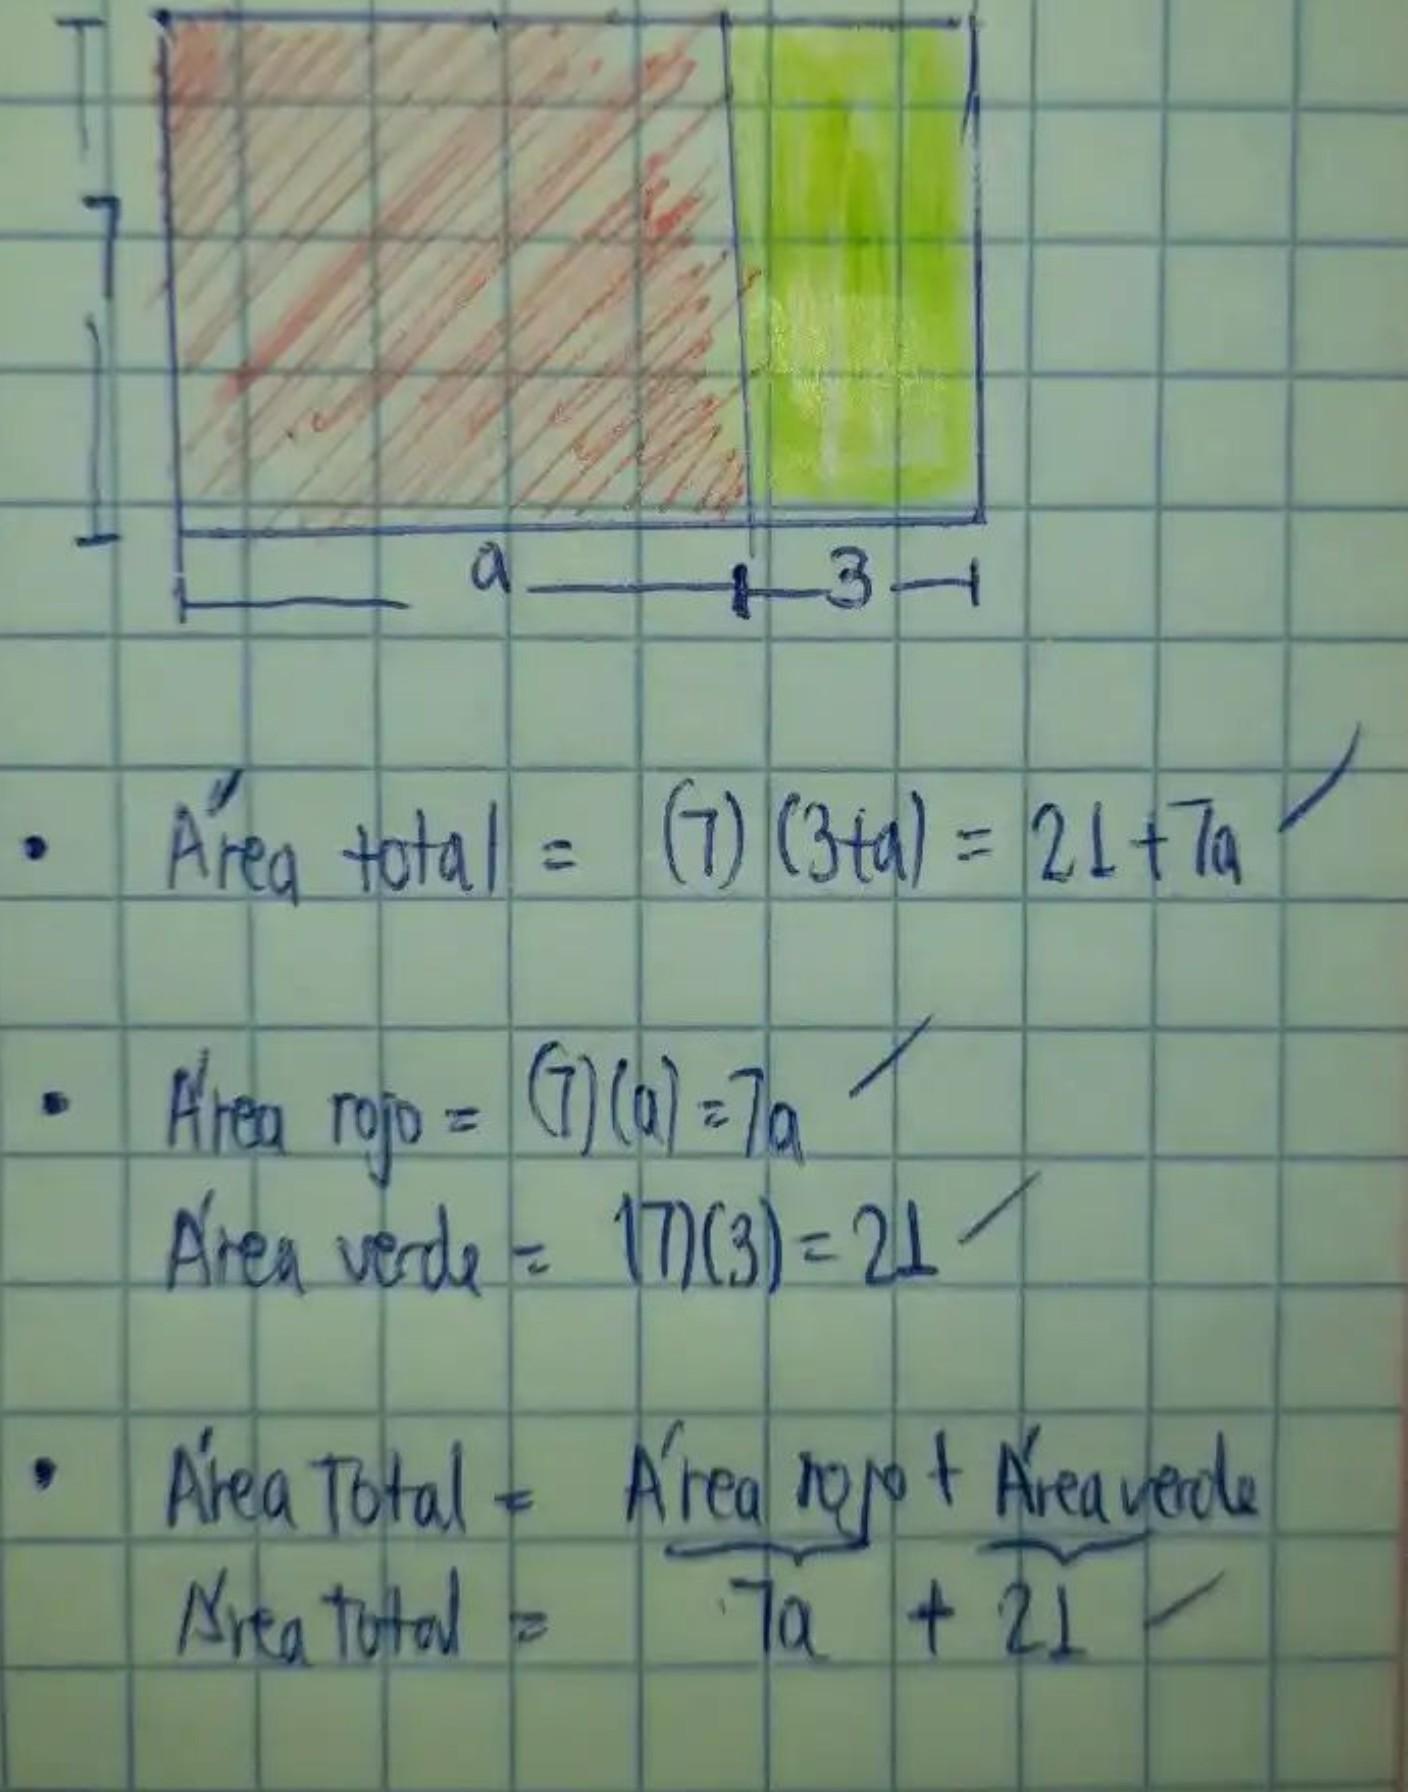 7
a 3
• Área total = (7) (3+a) = 21+7a
• Área rojo = (7)(a) = 7a
Área verde = (7)(3) = 21
• Área Total = Área rojo + Área verde
Área Total = 7a + 21